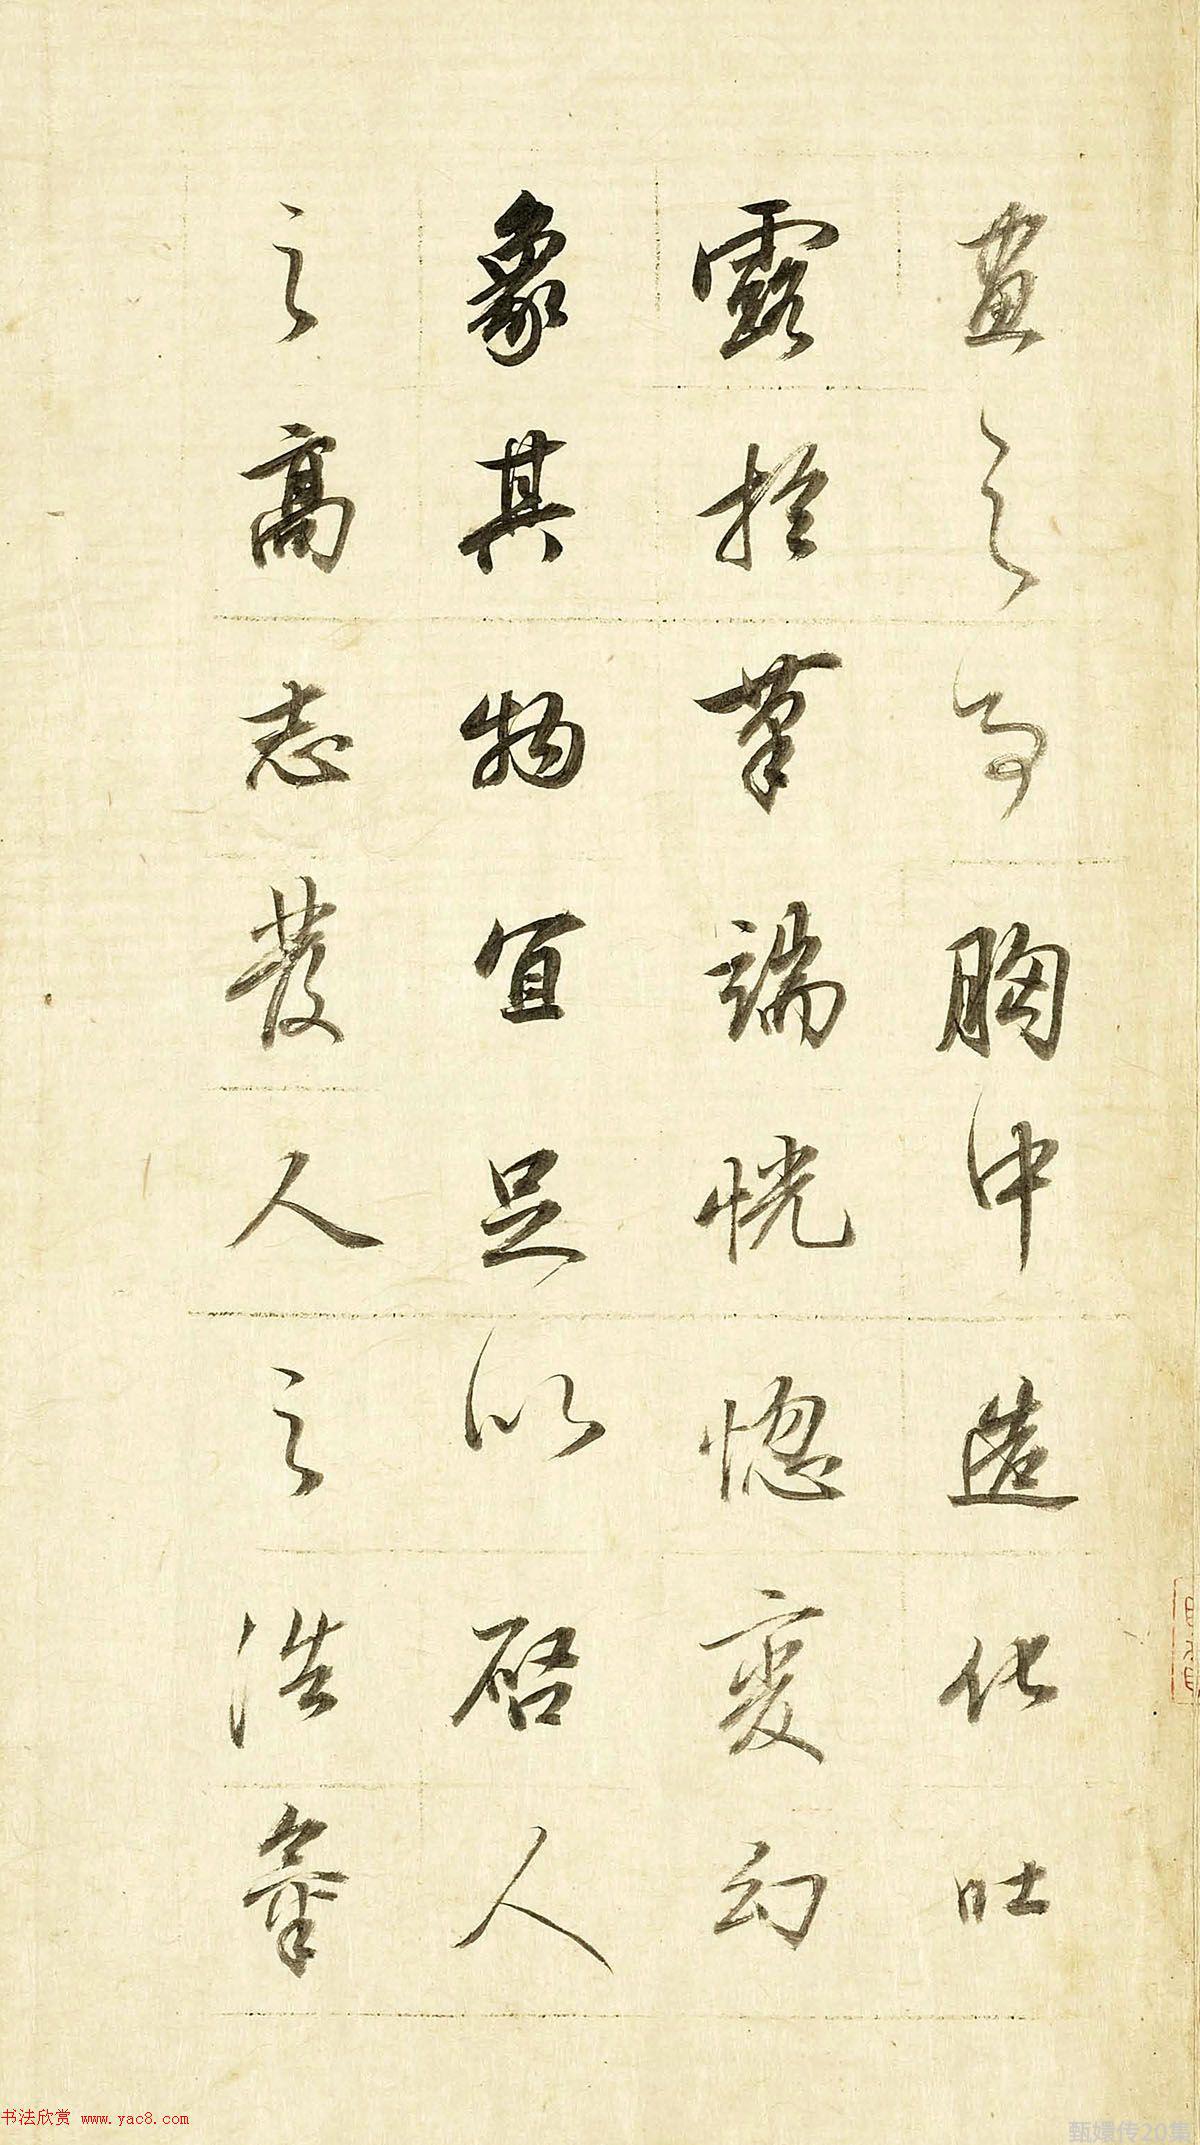 畫之為胸中造化吐
露於筆端恍惚變幻
象其物宜足以啓人
之高志發人之浩氣
书法欣赏 www.yac8.com
甄嬛传20集